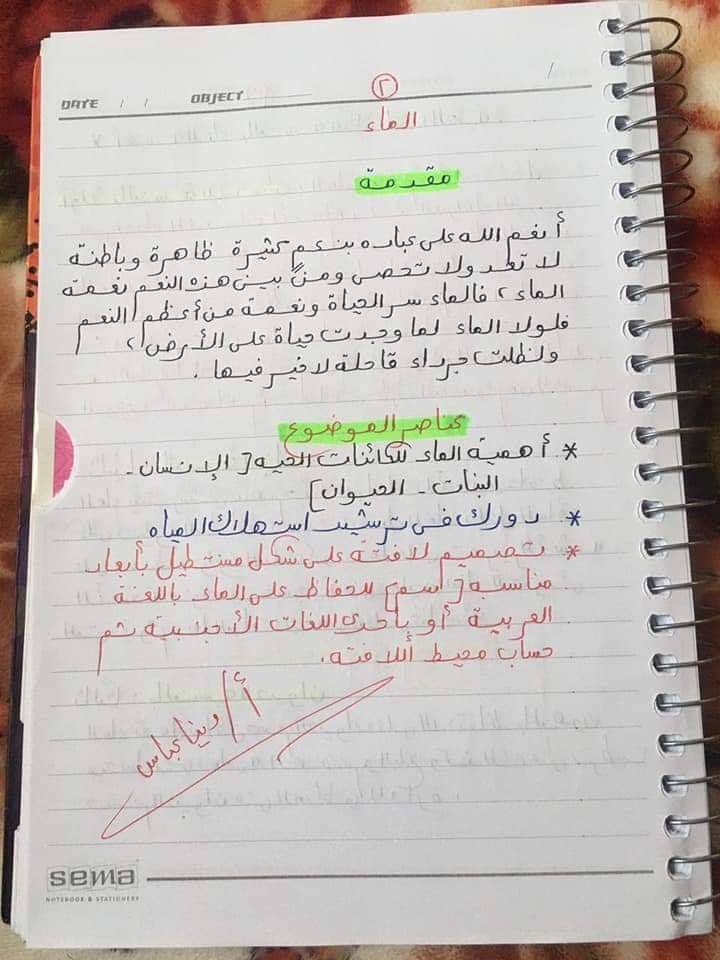 DATE / / OBJECT
٢
الماء
مقدمة
أنعم الله على عباده بنعم كثيرة ظاهرة وباطنة
لا تعد ولا تحصى ومن بين هذه النعم نعمة
الماء، فالماء سر الحياة ونعمة من أعظم النعم
فلولا الماء لما وجدت حياة على الأرض،
ولظلت جرداء قاحلة لا خير فيها.
عناصر الموضوع
* أهمية الماء للكائنات الحيه [الإنسان -
النبات - الحيوان]
* دورك فى ترشيد استهلاك المياه
* تصميم لافتة على شكل مستطيل بأبعاد
مناسبة [ للحفاظ على الماء باللغة
العربية أو بأحدى اللغات الأجنبية ثم
حساب محيط اللافته.
أ/ عباس
sema
NOTEBOOK & STATIONERY